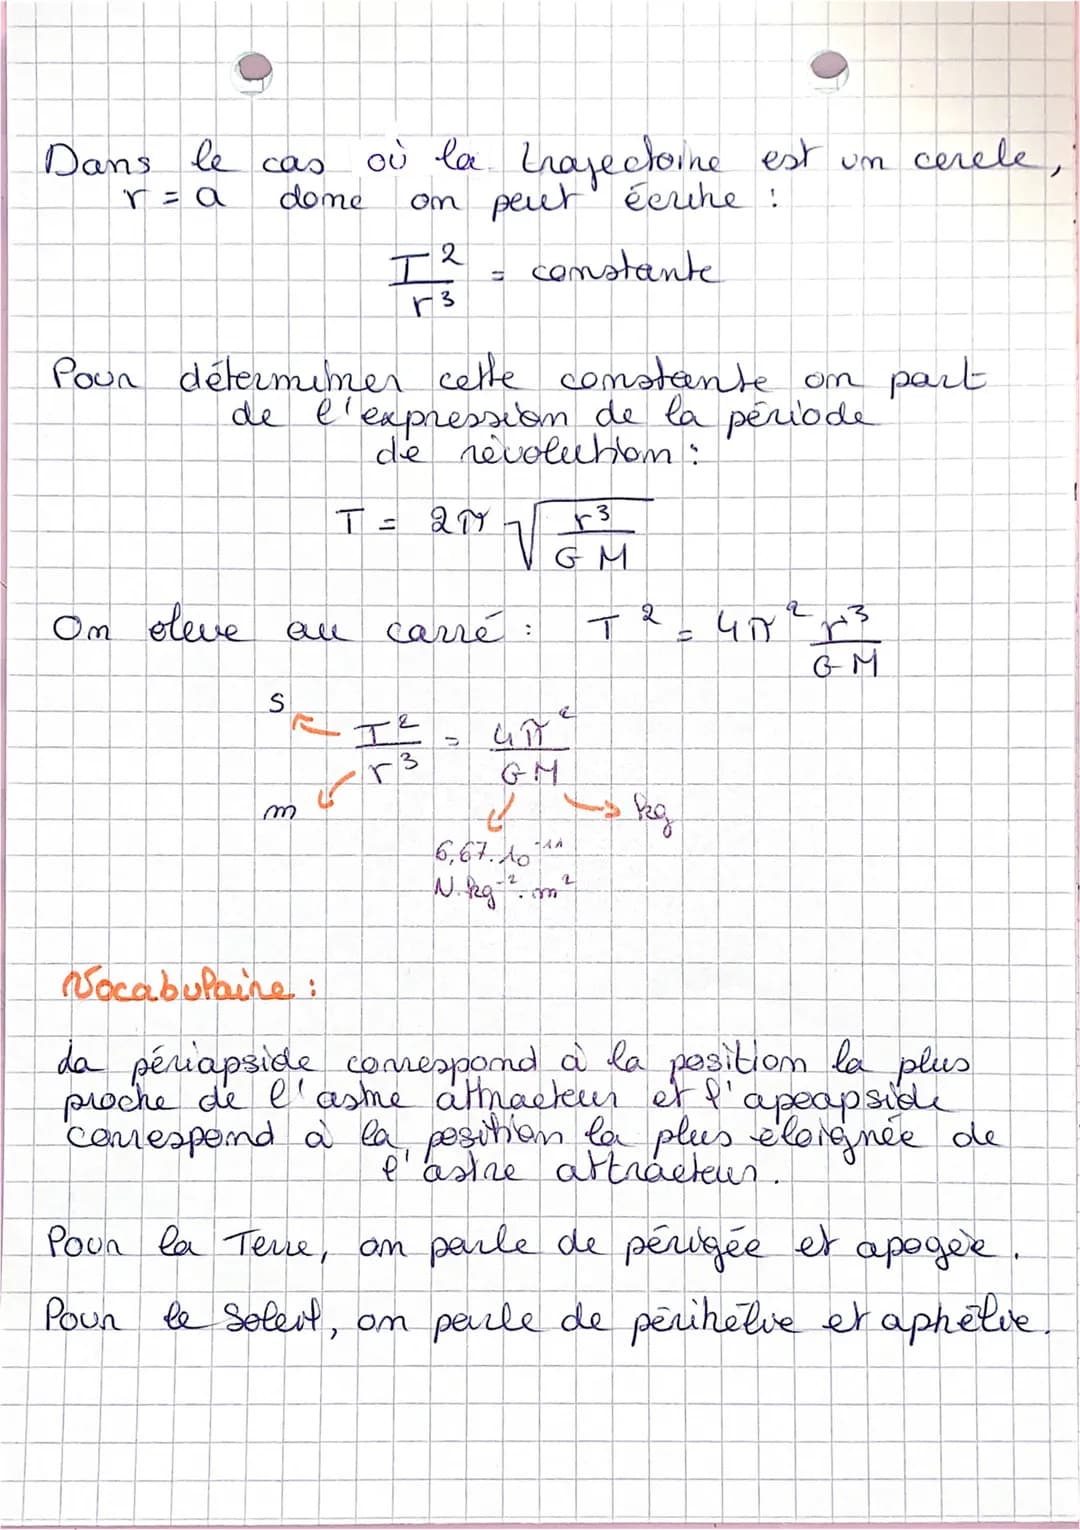 Dans le cas où la trajectoire est un cercle,
r = a donc on peut écrire :
T² / r³ = constante
Pour déterminer cette constante on part
de l'expression de la période
de révolution :
T = 2π √(r³ / G M)
On eleve au carré : T² = 4π² r³ / G M
s
T² / r³ = 4π² / G M
m
kg
6,67.10⁻¹¹
N.kg⁻².m²
Vocabulaire :
La périapside correspond à la position la plus
proche de l'astre attracteur et l'apoapside
correspond à la position la plus éloignée de
l'astre attracteur.
Pour la Terre, on parle de périgée et apogée.
Pour le Soleil, on parle de périhélie et aphélie.